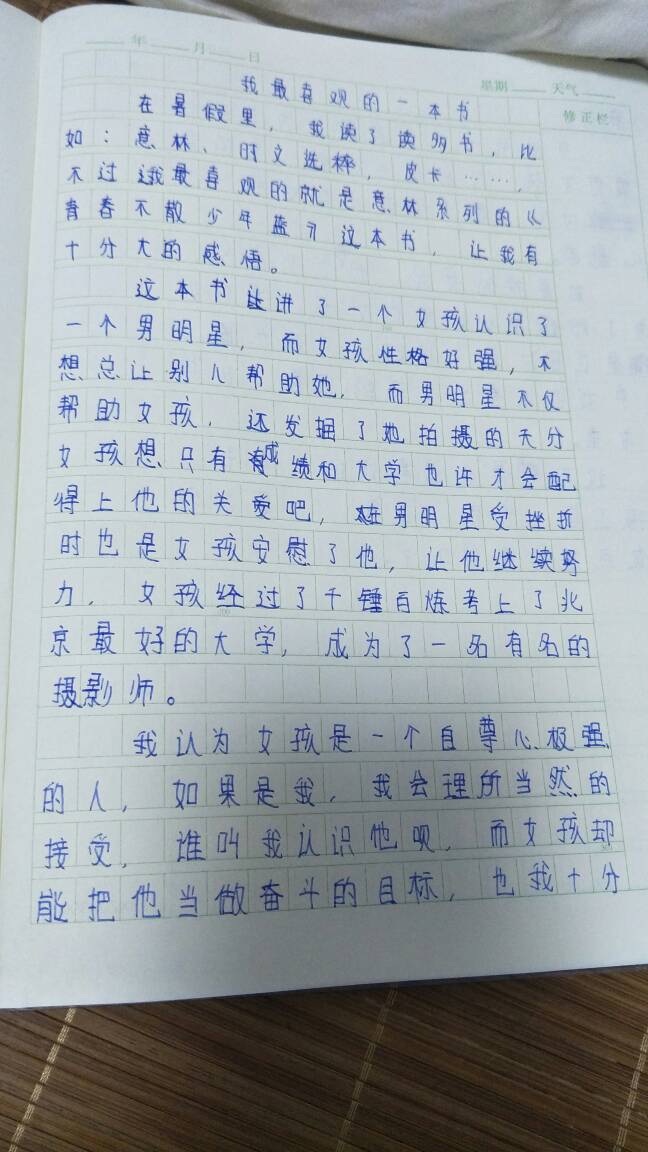 年 月 日 星期 天气
修正栏
我最喜观的一本书
在暑假里，我读了读多书，比
如：意林、时文选粹，皮卡……，
不过我最喜观的就是意林系列的《
青春不散少年蓝》这本书，让我有
十分大的感悟。
这本书讲了一个女孩认识了
一个男明星，而女孩性格好强，不
想总让别人帮助她，而男明星不仅
帮助女孩，还发掘了她拍摄的天分
女孩想只有成绩和大学也许才会配
得上他的关爱吧，在男明星受挫折
时也是女孩安慰了他，让他继续努
力，女孩经过了千锤百炼考上了北
京最好的大学，成为了一名有名的
摄影师。
我认为女孩是一个自尊心极强
的人，如果是我，我会理所当然的
接受，谁叫我认识他呗，而女孩却
能把他当做奋斗的目标，也我十分